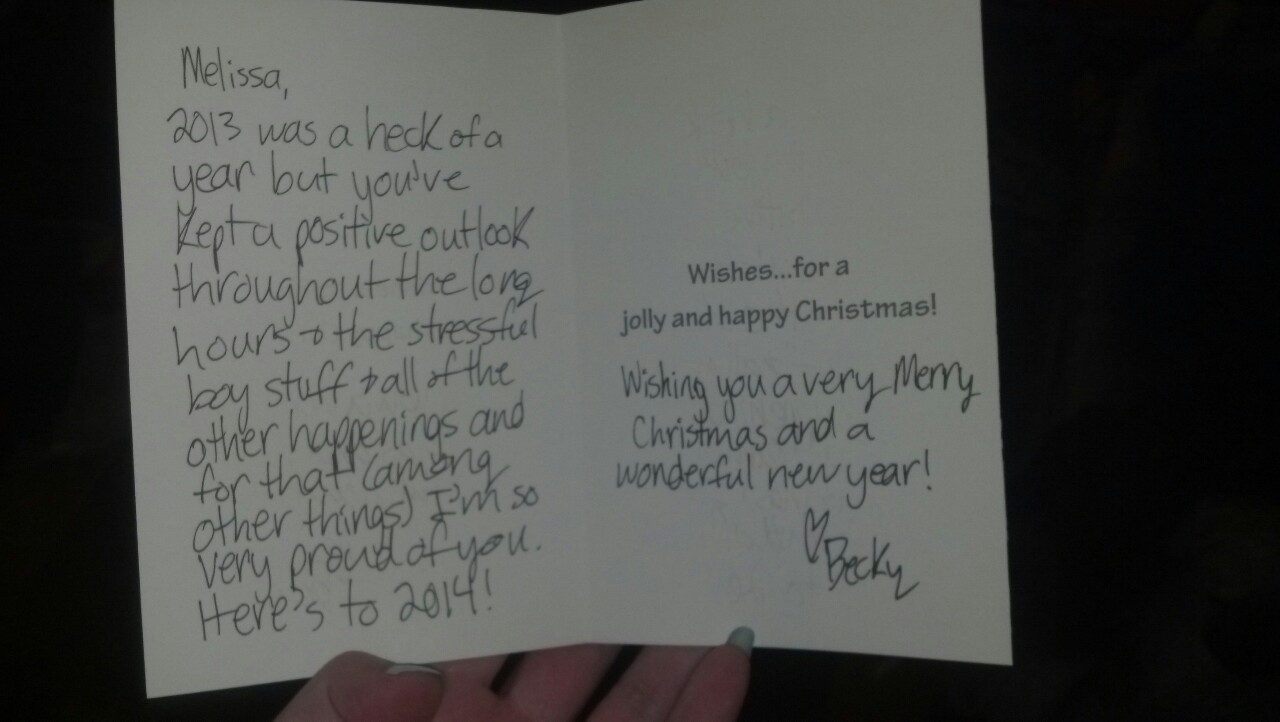 Melissa,
2013 was a heck of a
year but you've
kept a positive outlook
throughout the long
hours & the stressful
boy stuff & all of the
other happenings and
for that (among
other things) I'm so
very proud of you.
Here's to 2014!
Wishes...for a
jolly and happy Christmas!
Wishing you a very Merry
Christmas and a
wonderful new year!
♡Becky